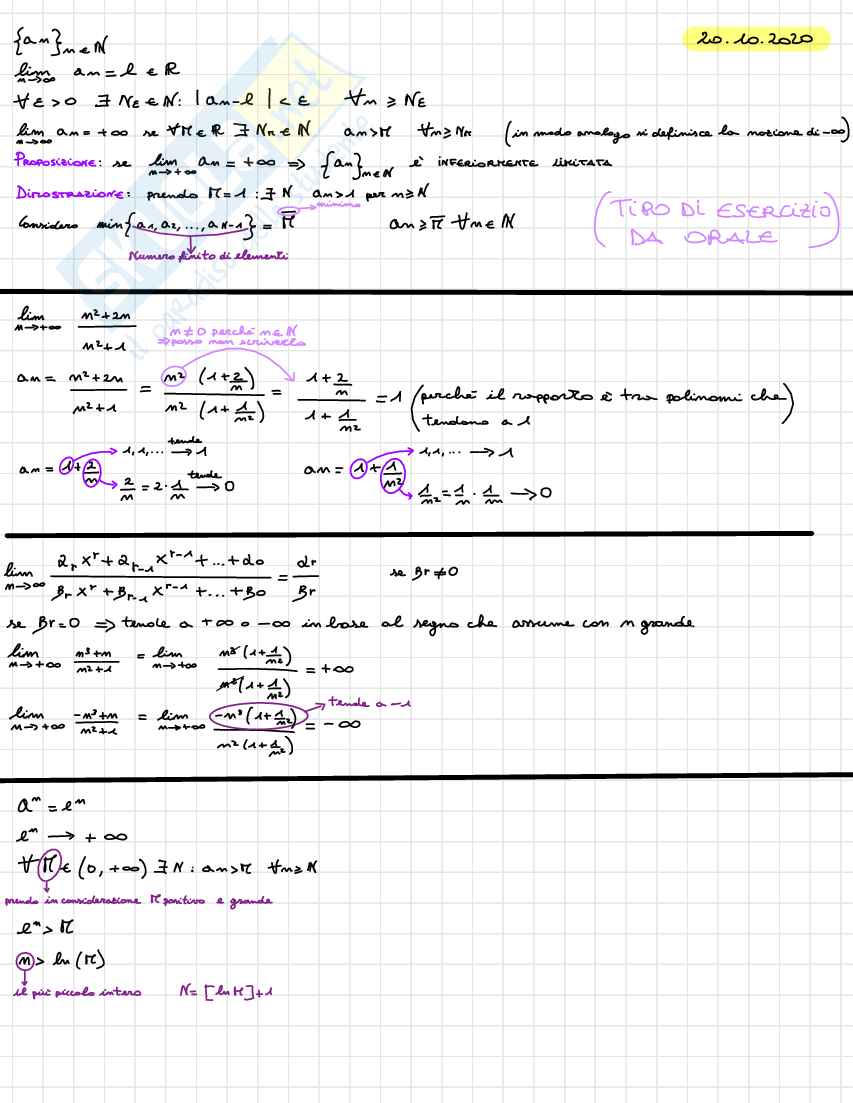 20.10.2020
{an}n∈N
lim n→∞ an = l ∈ R
∀ε>0 ∃ Nε∈N: |an-l| < ε ∀n ≥ Nε
lim n→∞ an = +∞ se ∀M∈R ∃ NM∈N an>M ∀n≥NM (in modo analogo si definisce la nozione di -∞)
PROPOSIZIONE: se lim n→+∞ an = +∞ ⇒ {an}n∈N è INFERIORMENTE LIMITATA
DIMOSTRAZIONE: prendo M=1 : ∃ N an>1 per n≥N
minimo
Considero min{a1, a2, ..., aN-1} = M̅ an ≥ M̅ ∀n∈N
Numero finito di elementi
(TIPO DI ESERCIZIO
DA ORALE)
lim n→+∞ (n²+2n)/(n²+1)
n≠0 perché n∈N
⇒posso non scriverlo
an = (n²+2n)/(n²+1) = n²(1+2/n)/n²(1+1/n²) = (1+2/n)/(1+1/n²) = 1 (perché il rapporto è tra polinomi che
tendono a 1)
an = 1+2/n 1,1,... tende → 1
2/n = 2·1/n tende → 0
an = 1+1/n² 1,1,... → 1
1/n² = 1/n · 1/n → 0
lim n→∞ (αr x^r + αr-1 x^r-1 + ... + αo)/(βr x^r + βr-1 x^r-1 + ... + βo) = αr/βr se βr≠0
se βr=0 ⇒ tende a +∞ o -∞ in base al segno che assume con n grande
lim n→+∞ (n³+n)/(n²+1) = lim n→+∞ n³(1+1/n²)/n²(1+1/n²) = +∞
lim n→+∞ (-n³+n)/(n²+1) = lim n→+∞ -n³(1+1/n²)/n²(1+1/n²) = -∞
tende a -1
a^n = e^n
e^n → +∞
∀ M ∈ (0, +∞) ∃ N : an>M ∀n≥N
prendo in considerazione M positivo e grande
e^n > M
n > ln(M)
il più piccolo intero N = [ln M]+1
skuola.net
il paradiso dello studente